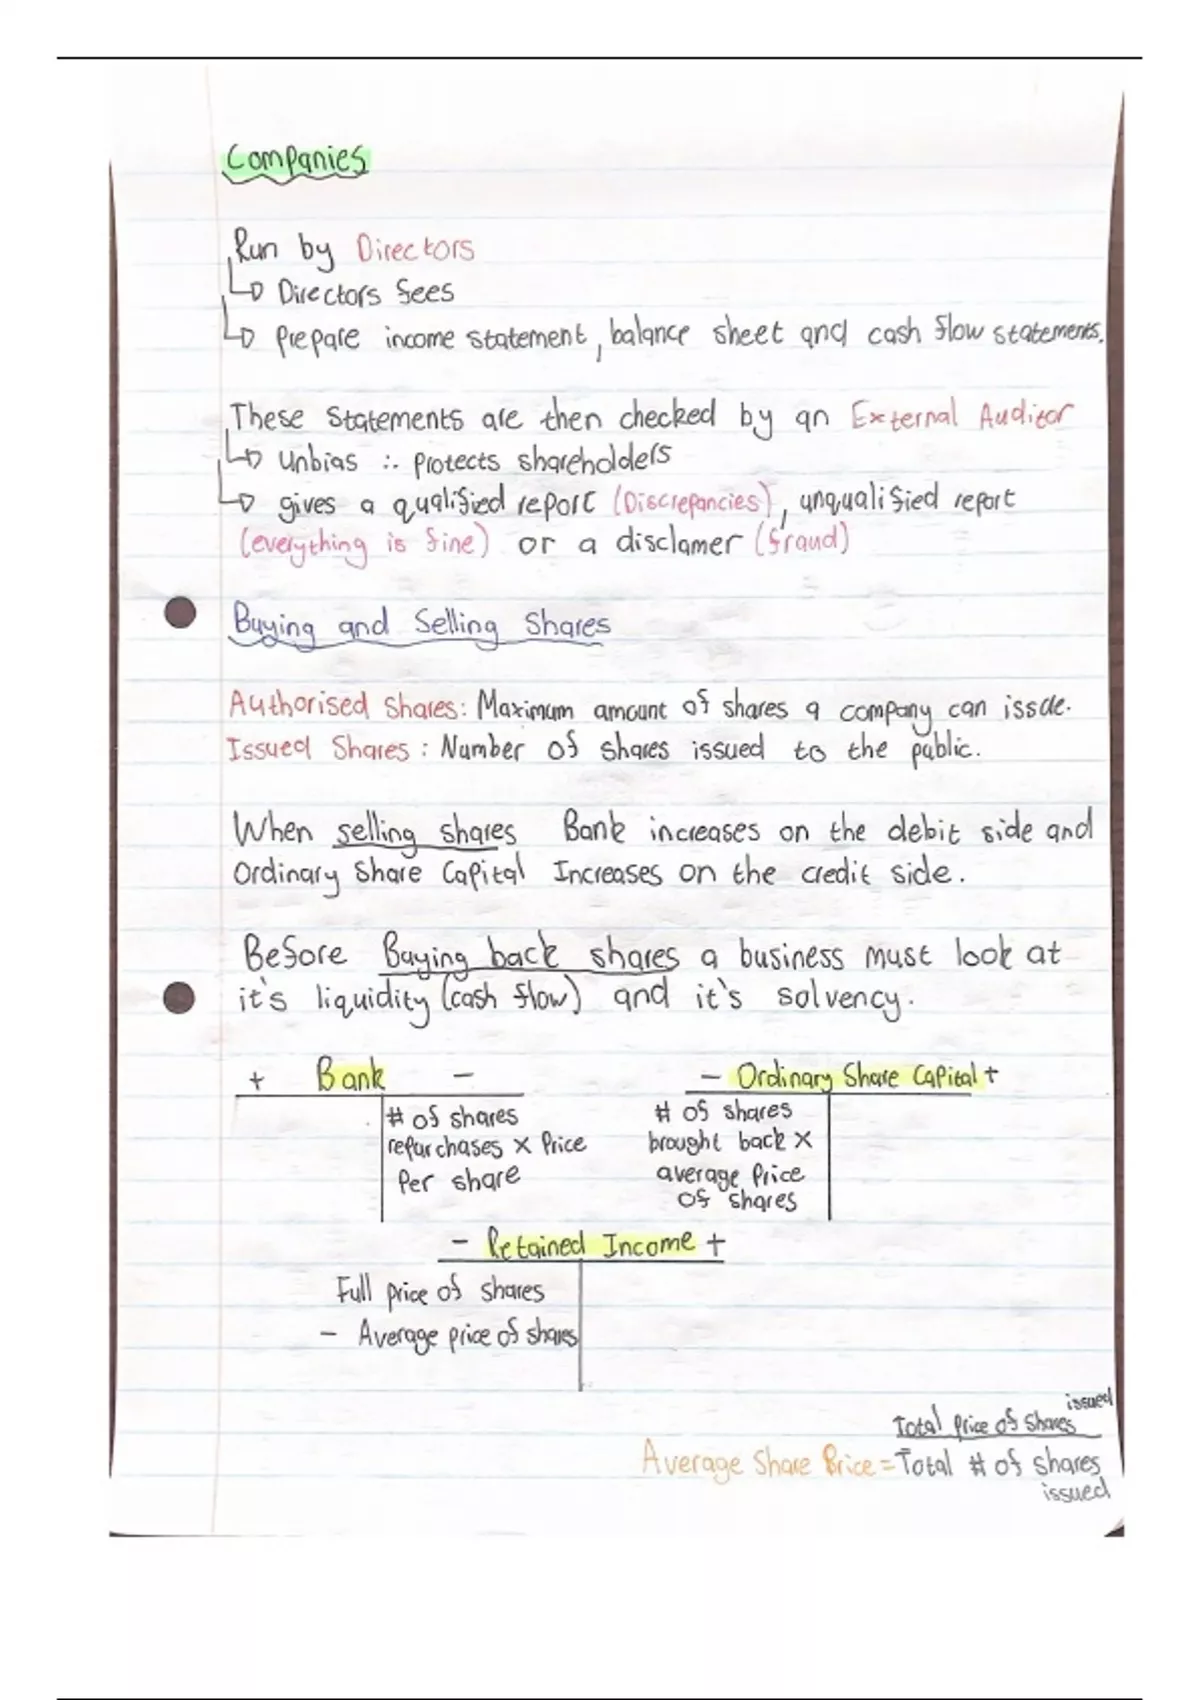 Companies
Run by Directors
↳ Directors fees
↳ Prepare income statement, balance sheet and cash flow statements.
These Statements are then checked by an External Auditor
↳ Unbias ∴ Protects shareholders
↳ gives a qualified report (Discrepancies), unqualified report
(everything is fine) or a disclamer (fraud)
Buying and Selling Shares
Authorised Shares: Maximum amount of shares a company can issue.
Issued Shares: Number of shares issued to the public.
When selling shares Bank increases on the debit side and
Ordinary Share Capital Increases on the credit side.
Before Buying back shares a business must look at
it's liquidity (cash flow) and it's solvency.
+ Bank -
# of shares
repurchases × Price
Per share
- Ordinary Share Capital +
# of shares
brought back ×
average Price
of shares
- Retained Income +
Full price of shares
- Average price of shares
issued
Total Price of Shares
Average Share Price = Total # of shares
issued